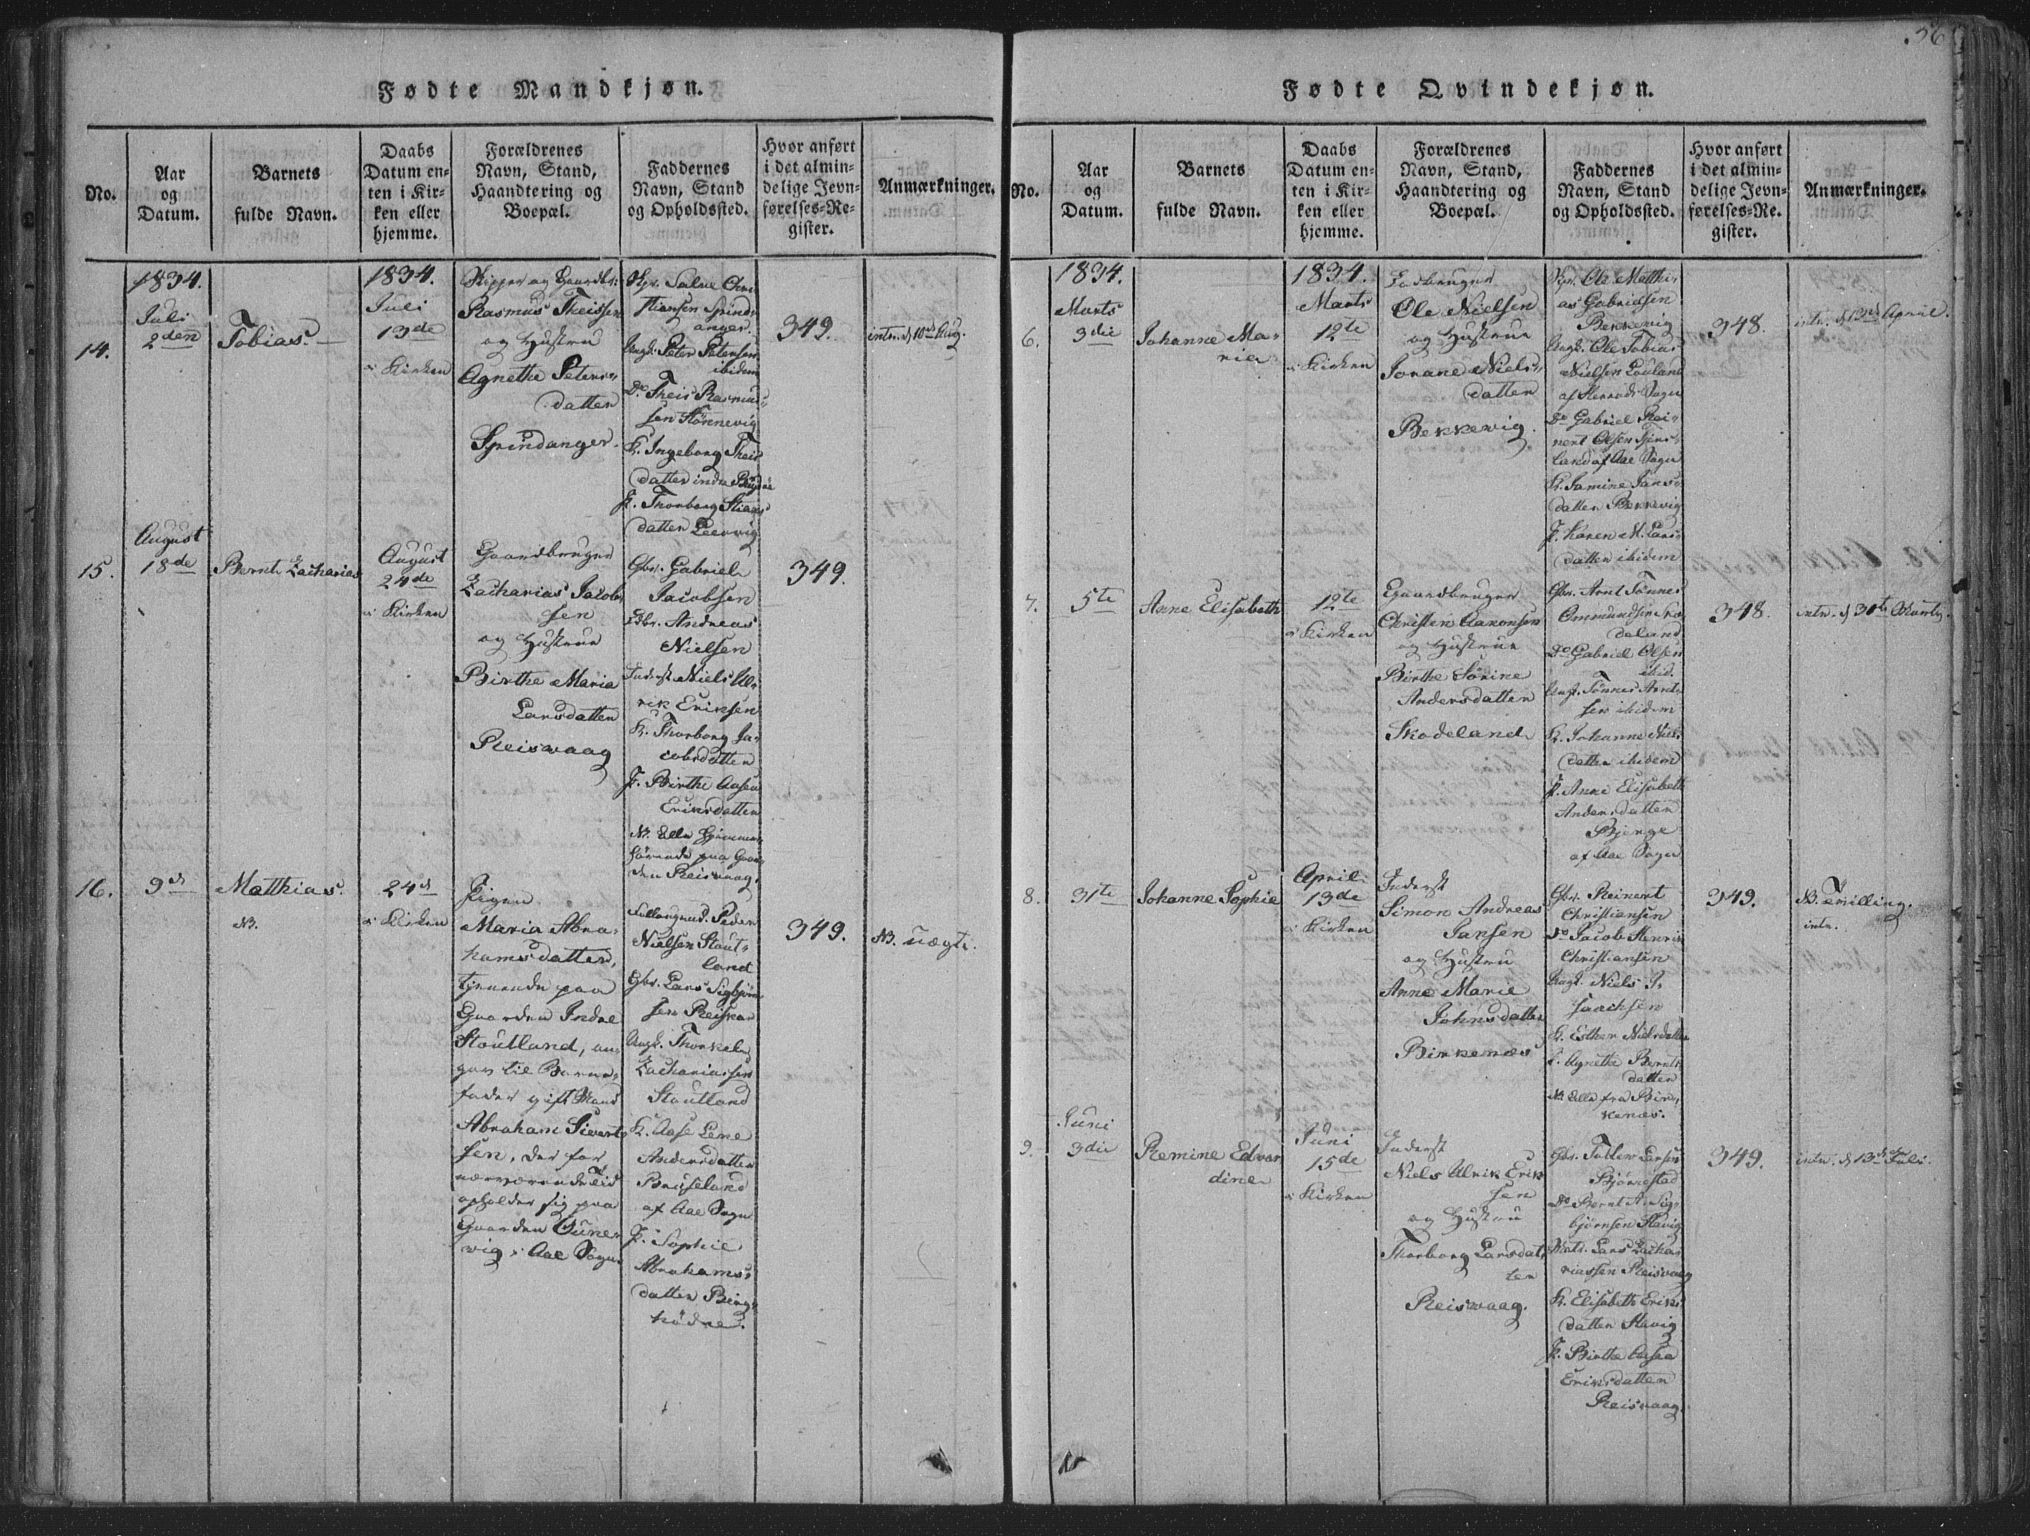 56
Fødte Mandkjøn.
No.
Aar
og
Datum.
Barnets
fulde Navn.
Daabs
Datum en-
ten i Kir-
ken eller
hjemme.
Forældrenes
Navn, Stand,
Haandtering og
Boepæl.
Faddernes
Navn, Stand
og Opholdssted.
Hvor anført
i det almin-
delige Jevn-
førelses-Re-
gister.
Anmærkninger.
14.
1834.
Juli
2den
Tobias.
1834.
Juli
13de
i Kirken
Skipper og Gaardbr.
Rasmus Theissen
og Hustru
Agnethe Peters-
datter
Spindanger.
Salve Chri-
stiansen Spind-
anger.
Ungk. Peter Petersen
ibidem
Do Theis Rasmus-
sen Stønnevig
K. Ingeborg Theis-
datter indre
P. Thorborg Stians-
datter Leervig
349.
intr. d 10de Aug.
15.
August
18de
Bernt Zacharias
August
24de
i Kirken
Gaardbruger
Zacharias Jacob-
sen
og Hustrue
Birthe Maria
Larsdatter
Reisvaag
Gbr. Gabriel
Jacobsen
Gbr. Andreas
Nielsen
Inderst Niels Ul-
rik Eriksen
K. Thorborg Ja-
cobsdatter
P. Birthe Aasea
Eriksdatter
NB. Alle hjemme-
hørende paa Gaar-
den Reisvaag.
349.
16.
9de
Matthias.
NB.
24de
i Kirken
Pigen
Maria Abra-
hamsdatter,
tjenende paa
Gaarden Indre
Stoutland, an-
gav til Barne-
fader gift Mand
Abraham Sivert-
sen, der for
nærværende Tid
opholder sig paa
Gaarden
vig, Aae Sogn
Peder
Nielsen Stout-
land
Gbr. Lars Sigbjørn-
sen
Ungk. Thorkel
Zachariassen
Stoutland
K. Aase Lene
Andersdatter
Bruseland
af Aae Sogn
P. Sophie
Abrahams-
datter Birg-
hødne.
349.
NB. uægte.
Fødte Qvindekjøn.
No.
Aar
og
Datum.
Barnets
fulde Navn.
Daabs
Datum en-
ten i Kir-
ken eller
hjemme.
Forældrenes
Navn, Stand,
Haandtering og
Boepæl.
Faddernes
Navn, Stand
og Opholdssted.
Hvor anført
i det almin-
delige Jevn-
førelses-Re-
gister.
Anmærkninger.
6.
1834.
Marts
3die
Johanne Ma-
ria
1834.
Marts
12te
i Kirken
Jordbruger
Ole Nielsen
og Hustrue
Jorane Niels-
datter
Bekkevig.
Ole Matthi-
as Gabrielsen
Bekkevig
Ungk. Ole Tobias
Nielsen Louland
af Herreds Sogn
Do Gabriel Rei-
nert Olsen
land af Aae Sogn
K. Jamine Jans-
datter Bekkevig
P. Karen M. Lars-
datter ibidem
348.
intr. d 13de April.
7.
5te
Anne Elisabeth
12te
i Kirken
Gaardbruger
Christen Aaronsen
og Hustrue
Birthe Sørine
Andersdatter
Skodeland
Gbr. Arnt Tønnes
Ommundsen Sko-
deland
Do Gabriel Olsen
ibid.
Ungk. Tønnes Arnt-
sen ibidem
K. Johanne Niels-
datter ibidem
P. Anne Elisabeth
Andersdatter
Bjerge
af Aae Sogn
348.
intr. d 31te Marts.
8.
31te
Johanne Sophie
April
13de
i Kirken
Inderst
Simon Andreas
Jansen
og Hustru
Anne Marie
Johnsdatter
Birkenæs
Gbr. Reinert
Christiansen
Do Jacob Henrik
Christiansen
Ungk. Niels I-
saachsen
K. Esther Nielsdatter
P. Agnethe Bernts-
datter
NB. Alle fra Bir-
kenæs.
349.
NB. Tvilling.
intr.
9.
Juni
3die
Remine Edvar-
dine
Juni
15de
i Kirken
Inderst
Niels Ulrik Erik-
sen
og Hustru
Thorborg Larsdat-
ter
Reisvaag.
Gbr. Tollew Larsen
Bjørnestad
Do Bernt A. Sig-
bjørnsen Stavig
Lars Zacha-
riassen Reisvaag
K. Elisabeth Eriks-
datter Stavig
P. Birthe Aasea
Eriksdatter
Reisvaag.
349.
intr. d 13de Juli.